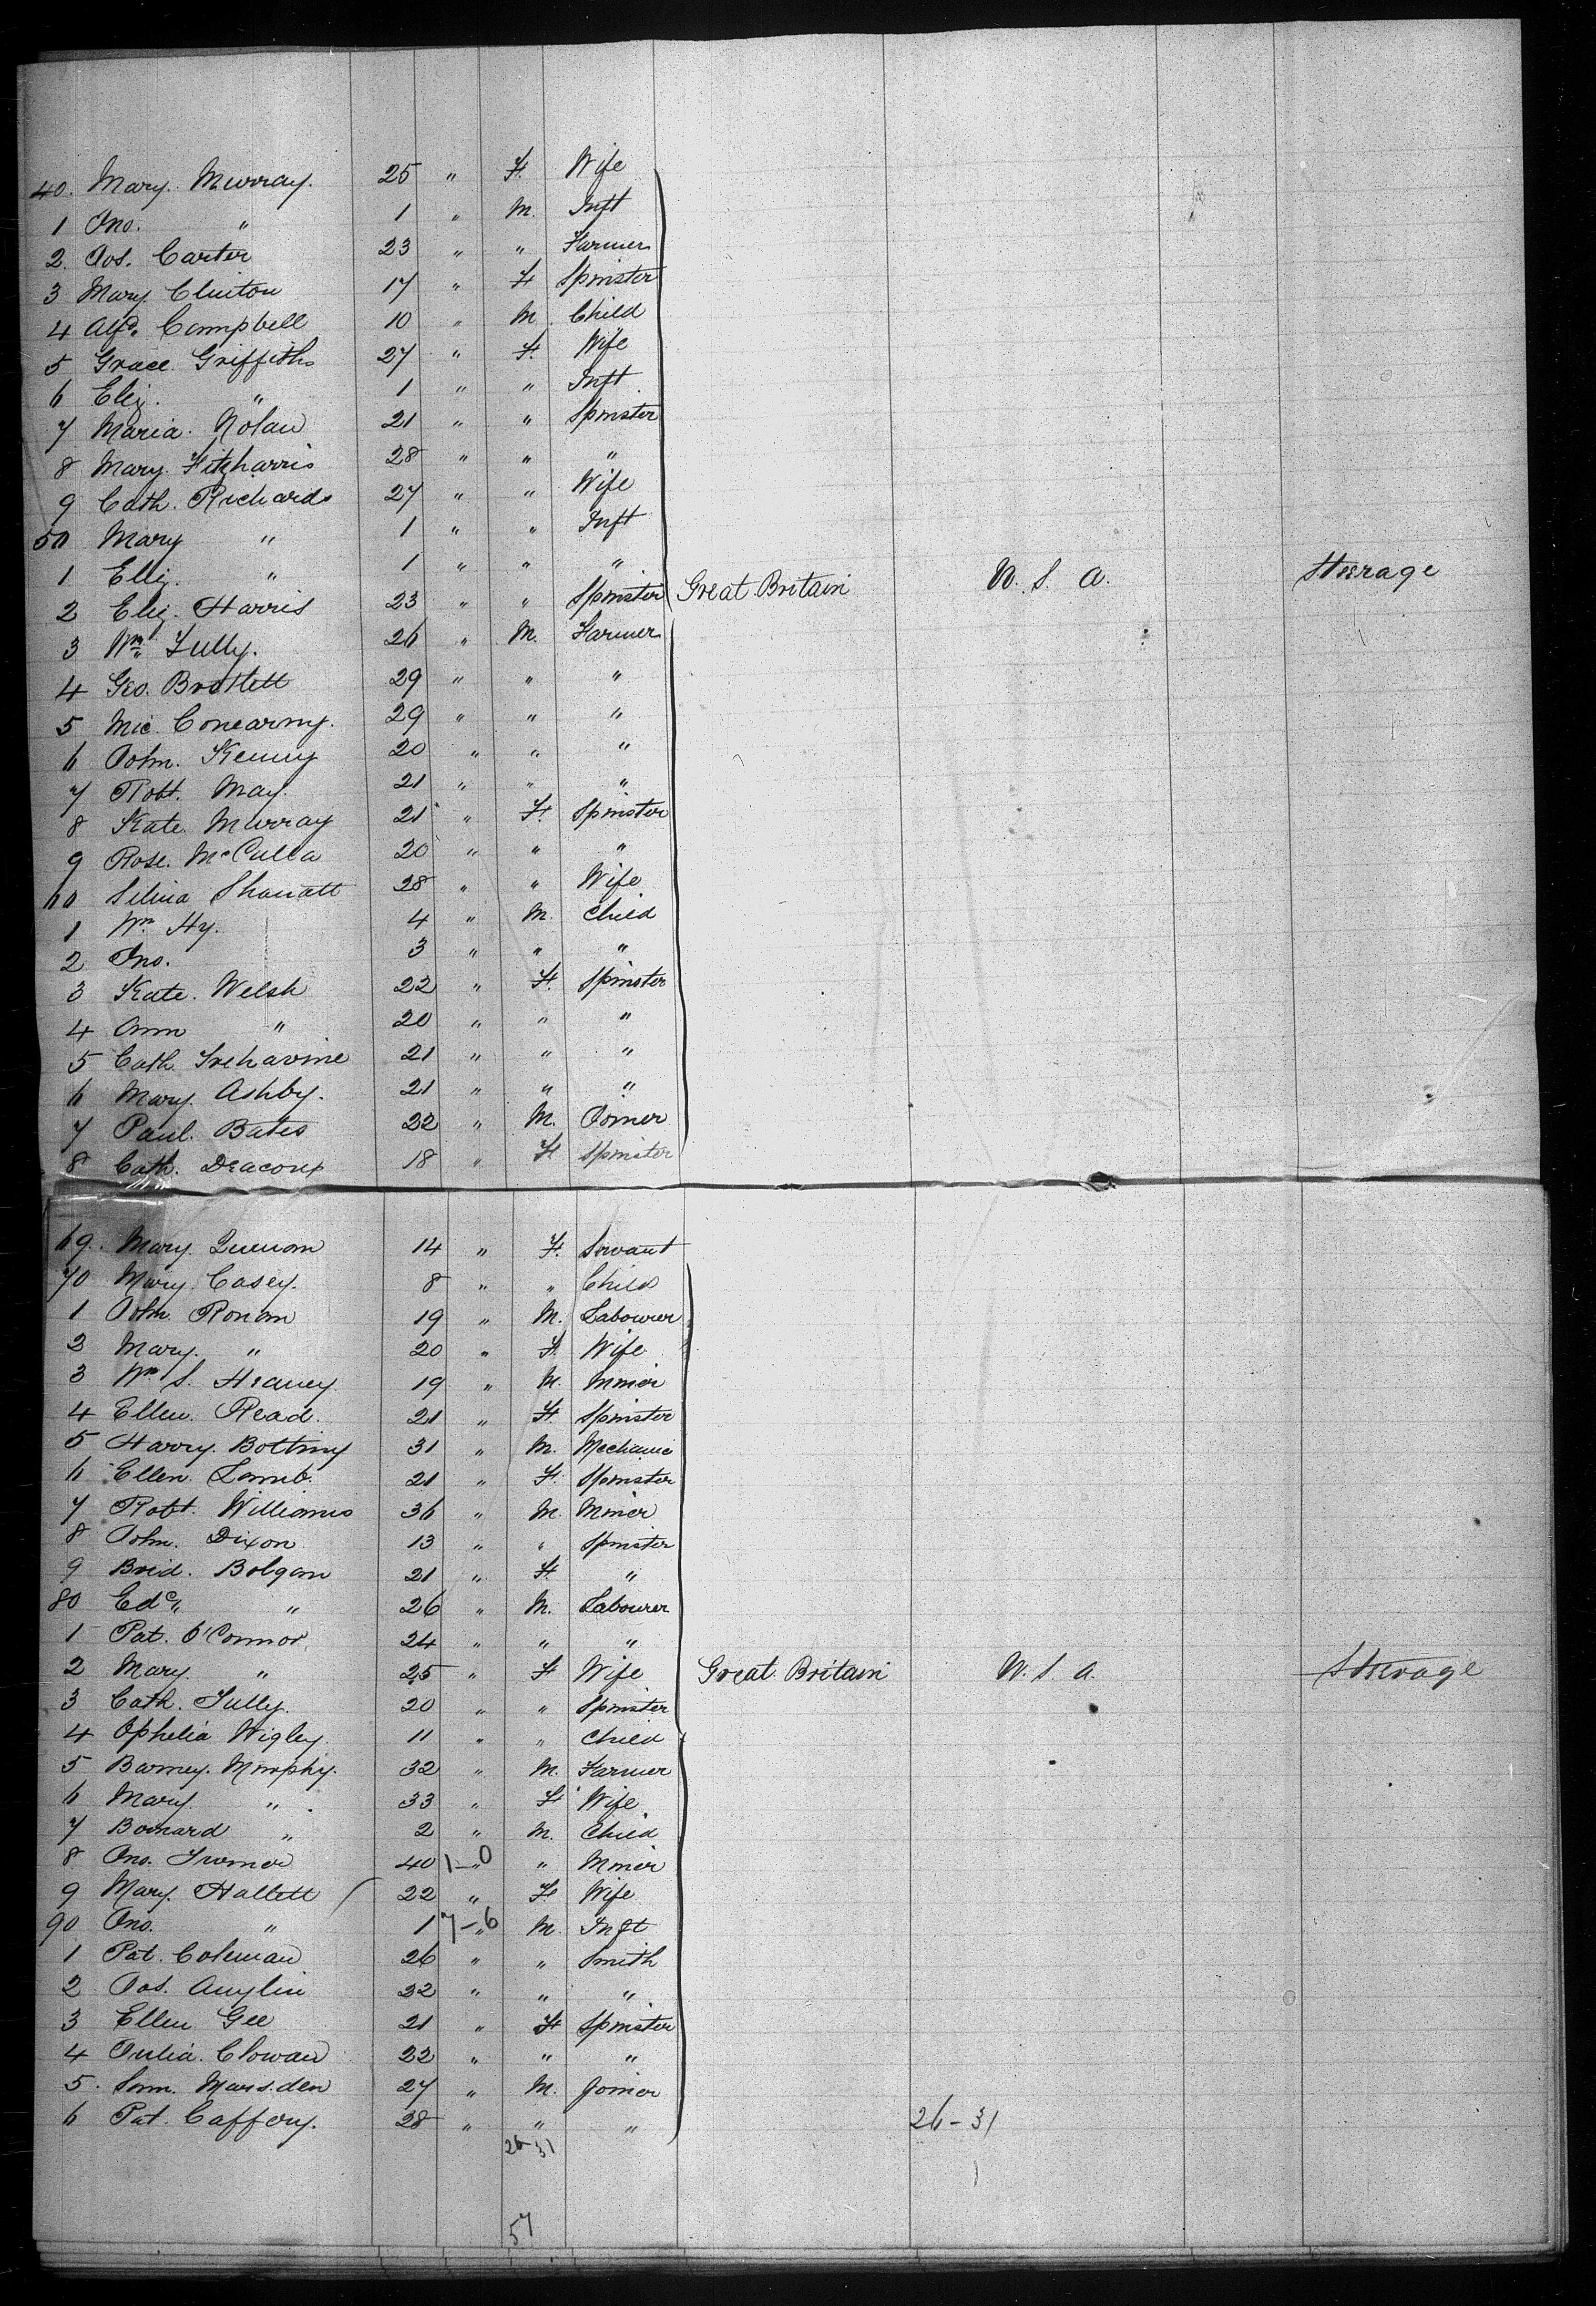 40. Mary. Murray. 25 " F. Wife
1 Jno. " 1 " M. Inft
2. Jos. Carter 23 " " Farmer
3 Mary. Clinton 17 " F Spinster
4 Alfd. Campbell 10 " M. Child
5 Grace. Griffiths 27 " F. Wife
6 Eliz. " 1 " " Inft
7 Maria. Nolan 21 " " Spinster
8 Mary. Fitzharris 28 " " "
9 Cath. Richards 27 " " Wife
50 Mary " 1 " " Inft
1 Eliz. " 1 " " "
2 Eliz. Harris 23 " " Spinster Great Britain U. S. A. Steerage
3 Wm. Tully. 26 " M. Farmer
4 Geo. 29 " " "
5 Mic. 29 " " "
6 John. Kenny 20 " " "
7 Robt. May. 21 " " "
8 Kate. Murray 21 " F. Spinster
9 Rose. McCulla 20 " " "
60 Selina 28 " " Wife
1 Wm. Hy. 4 " M. Child
2 Jno. 3 " " "
3 Kate. Welsh 22 " F. Spinster
4 Ann " 20 " " "
5 Cath. 21 " " "
6 Mary. Ashby. 21 " " "
7 Paul. Bates 22 " M. Joiner
8 Cath. Deacon 18 " F Spinster
69. Mary. 14 " F. Servant
70 Mary. Casey. 8 " " Child
1 John. Ronan 19 " M. Labourer
2 Mary. " 20 " F. Wife
3 Wm. S. Heaney 19 " M. Miner
4 Ellen. Read. 21 " F. Spinster
5 Harry. Botting 31 " M. Mechanic
6 Ellen. Lamb. 21 " F. Spinster
7 Robt. Williams 36 " M. Miner
8 John. Dixon 13 " " Spinster
9 Brid. Bolgan 21 " F. "
80 Edd. " 26 " M. Labourer
1 Pat. O'Connor. 24 " " "
2 Mary. " 25 " F Wife Great Britain U. S. A. Steerage
3 Cath. Tully. 20 " " Spinster
4 Ophelia Wigley. 11 " " Child
5 Barney. Murphy. 32 " M. Farmer
6 Mary. " 33 " F Wife
7 Bernard " 2 " M. Child
8 Jno. 40 1-0 " " Miner
9 Mary. Hallett 22 " F. Wife
90 Jno. " 1 7-6 " M. Inft
1 Pat. Coleman 26 " " Smith
2 Jos. 22 " " "
3 Ellen Gee 21 " F Spinster
4 Julia. Clowan 22 " " "
5. Sam. Marsden 27 " M. Joiner
6 Pat. Caffery. 28 " " " 26-31
26-31
57